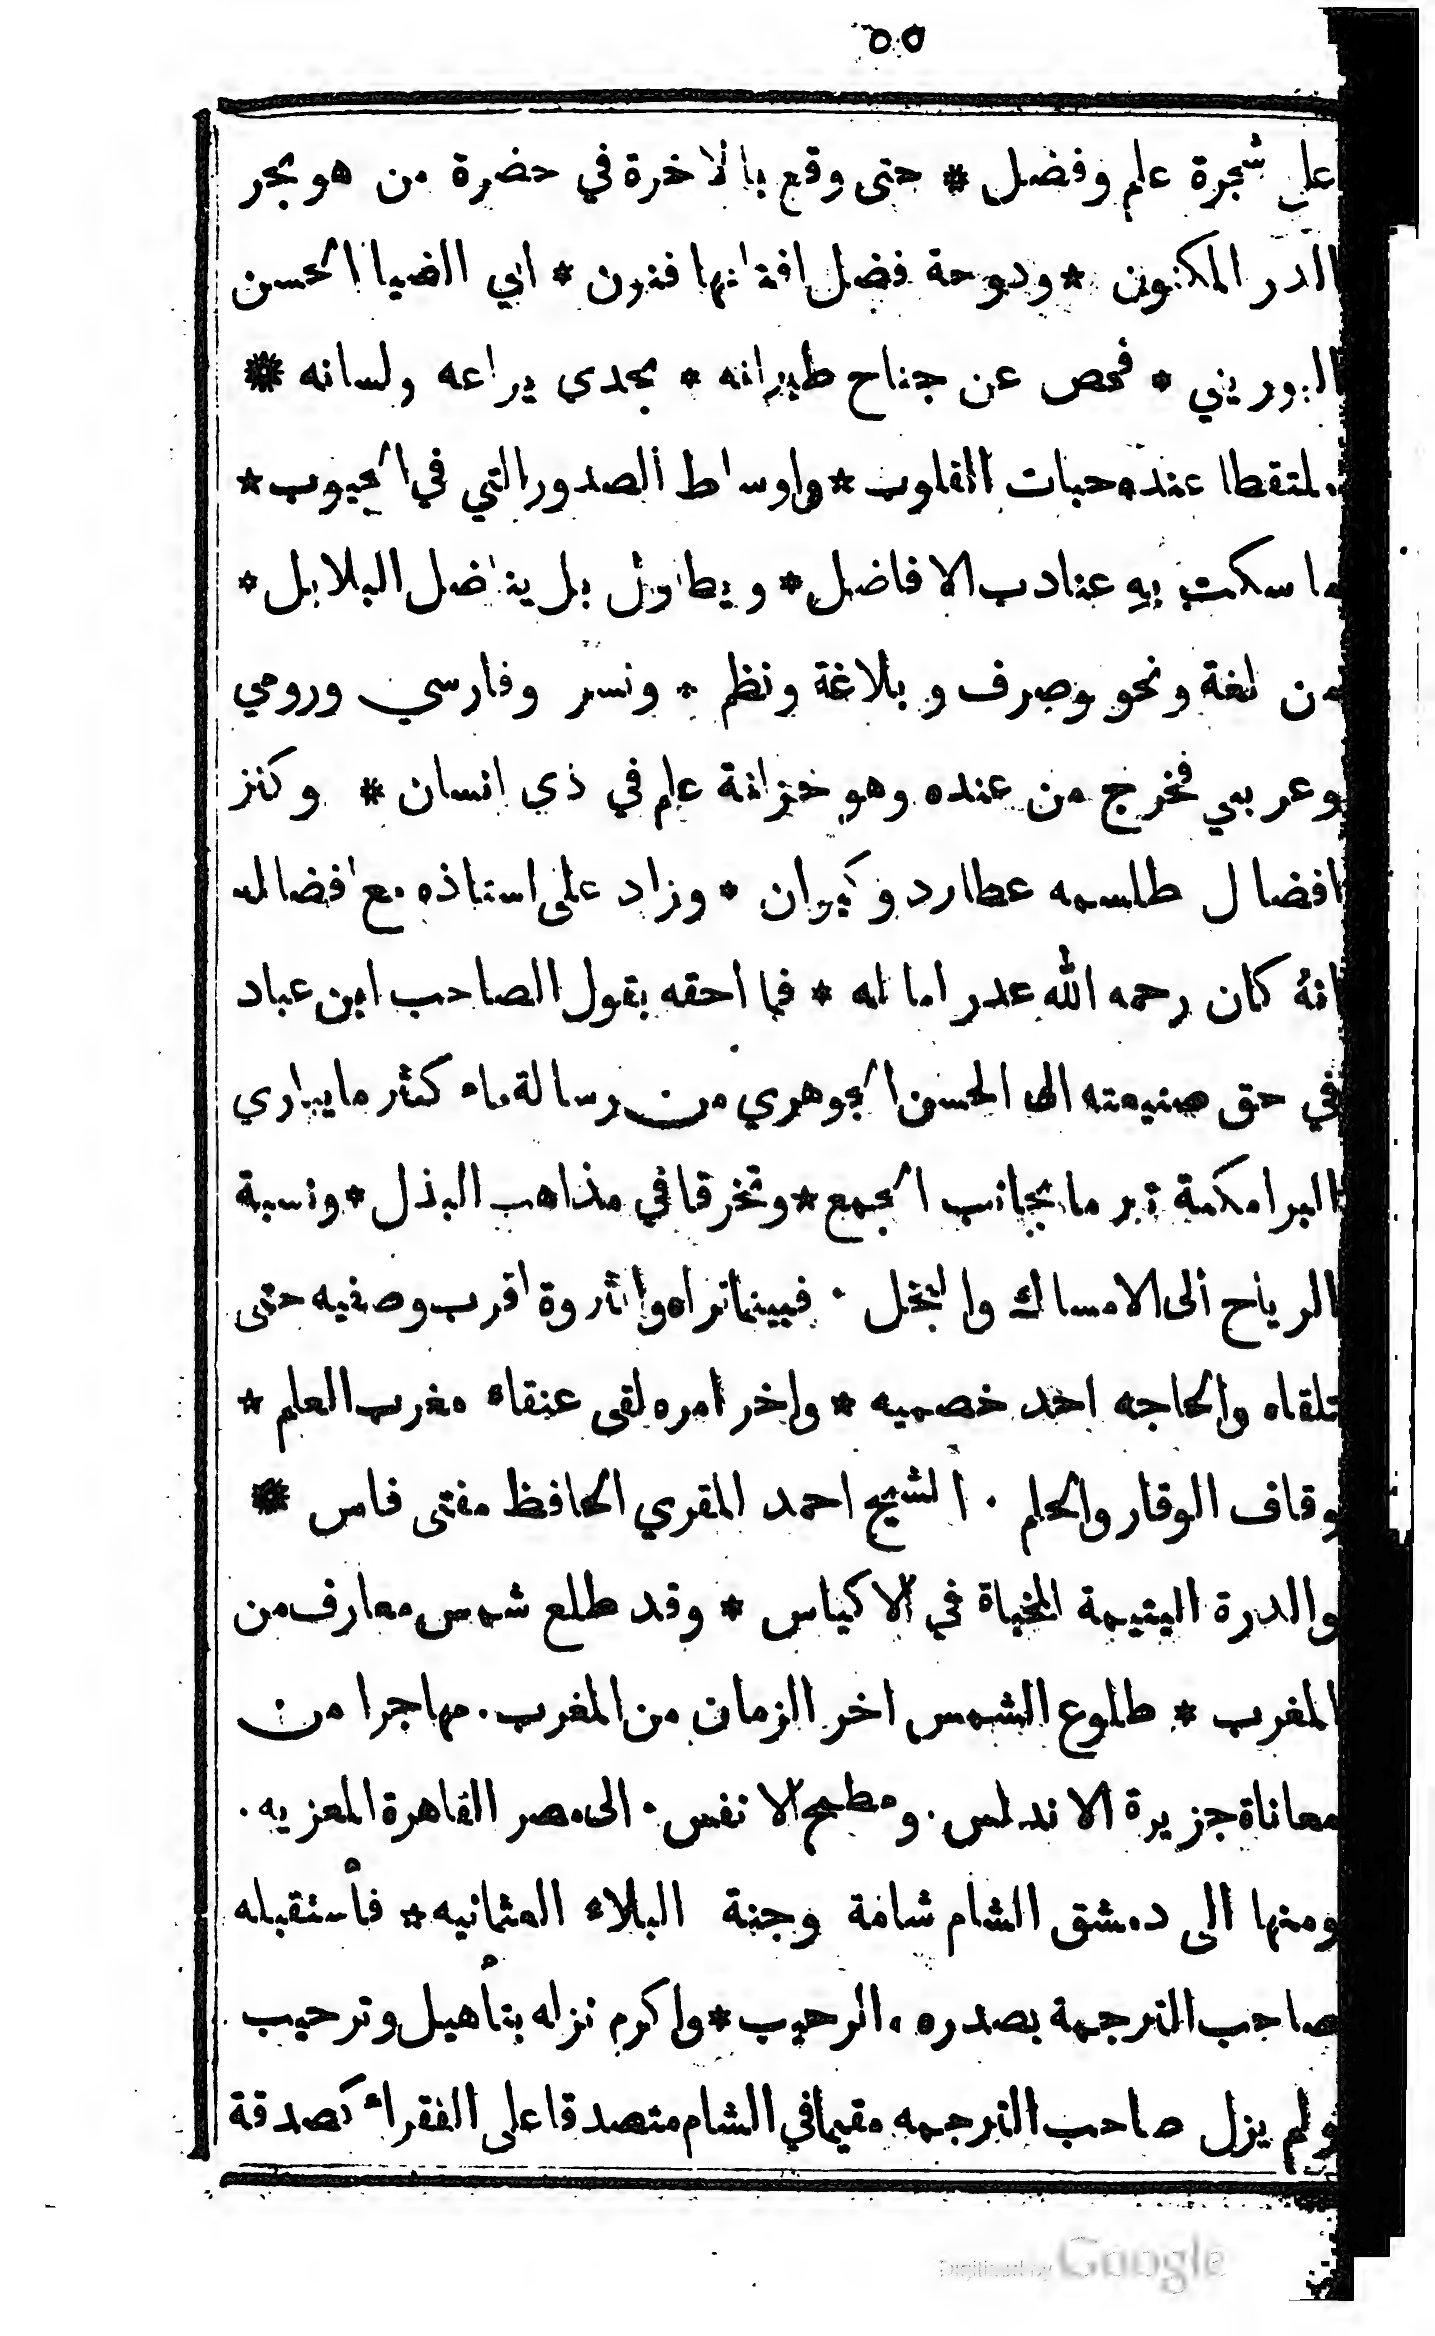 ٥٥
على شجرة علم وفضل * حتى وقع بالاخرة في حضرة من هو بحر
الدر المكنون * ودوحة فضل افنانها فنون * ابي الضيا الحسن
البوريني * فحص عن جناح طيرانه * بجدى يراعه ولسانه *
ملتقطا عنده حبات القلوب * واوساط الصدور التي في الجيوب *
ما سكت به عنادب الافاضل * ويطاول بل يناضل البلابل *
من لغة ونحو وصرف وبلاغة ونظم * ونسر وفارسي ورومي
وعربي فخرج من عنده وهو خزانة علم في ذي انسان * وكنز
افضال طلسمه عطارد وكيوان * وزاد على استاذه مع افضاله
انه كان رحمه الله عدر اما له * فما احقه بقول الصاحب ابن عباد
في حق صنيعته الى الحسن الجوهري من رسالة ماء كثر ما يباري
البرامكة تبرما بجانب الجمع * وتخرقا في مذاهب البذل * ونسبة
الرياح الى الامساك والبخل · فبينما تراه واثروة اقرب وصفيه حتى
تلقاه والحاجه احد خصميه * واخر امره لقى عنقاء مغرب العلم *
وقاف الوقار والحلم · الشيخ احمد المقري الحافظ مفتى فاس *
والدرة اليتيمة المخباة في الاكياس * وقد طلع شمس معارف من
المغرب * طلوع الشمس اخر الزمان من المغرب · مهاجرا من
معاناة جزيرة الاندلس · ومطمح الانفس · الى مصر القاهرة المعزيه ·
ومنها الى دمشق الشام شامة وجنة البلاء العثمانيه * فأستقبله
صاحب الترجمة بصدره الرحيب * واكرم نزله بتأهيل وترحيب
ولم يزل صاحب الترجمه مقيما في الشام متصدقا على الفقراء كصدقة
Digitized by Google